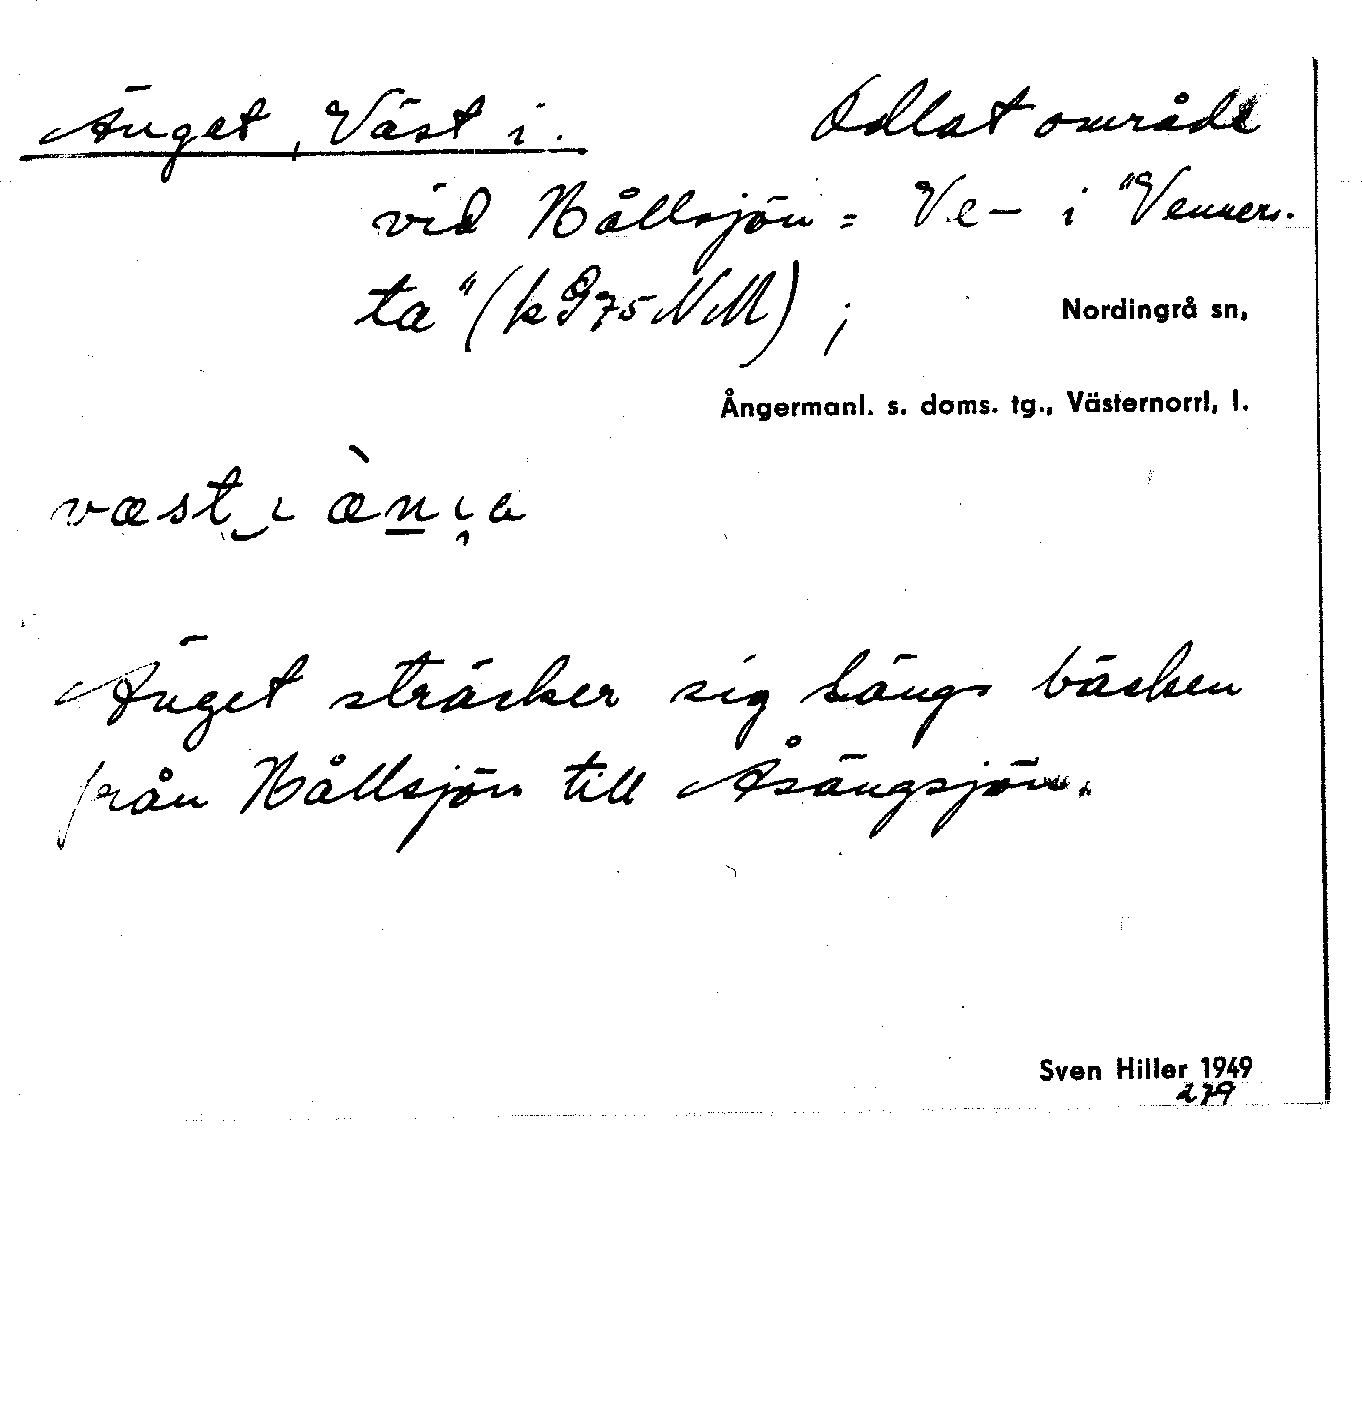 Änget, Väst i.
Odlat område
vid Mållsjön = Ve- i "Venners-
ta" (k G75 NM) ;
Nordingrå sn,
Ångermanl. s. doms. tg., Västernorrl, l.
væst
Änget sträcker sig längs bäcken
från Mållsjön till Åsängsjön.
Sven Hiller 1949
279